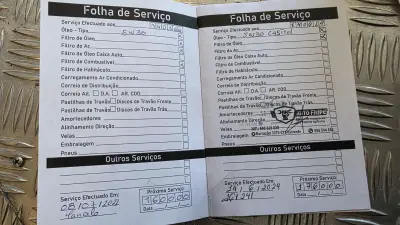 Folha de Serviço
Serviço Efectuado aos
Óleo - Tipo 5W30
Filtro de Óleo
Filtro de Ar
Filtro de Óleo Caixa Auto.
Filtro de Combustível
Filtro de Habitáculo
Carregamento Ar Condicionado
Correia de Distribuição
Correia Alt. D.A. AR. CON.
Pastilhas de Travão Discos de Travão Frente
Pastilhas de Travão Discos de Travão Trás
Amortecedores
Alinhamento Direção
Velas
Embraiagem
Pneus
Outros Serviços
Serviço Efectuado Em:
Próximo Serviço
160000
Data
Folha de Serviço
Serviço Efectuado aos
Óleo - Tipo 5W30
Filtro de Óleo
Filtro de Ar
Filtro de Óleo Caixa Auto.
Filtro de Combustível
Filtro de Habitáculo
Carregamento Ar Condicionado
Correia de Distribuição
Correia Alt. D.A. AR. CON.
Pastilhas de Travão Discos de Travão Frente
Pastilhas de Travão Discos de Travão Trás
Amortecedores
Alinhamento Direção
Velas
Embraiagem
Pneus
Outros Serviços
Serviço Efectuado Em:
Próximo Serviço
176000
Data